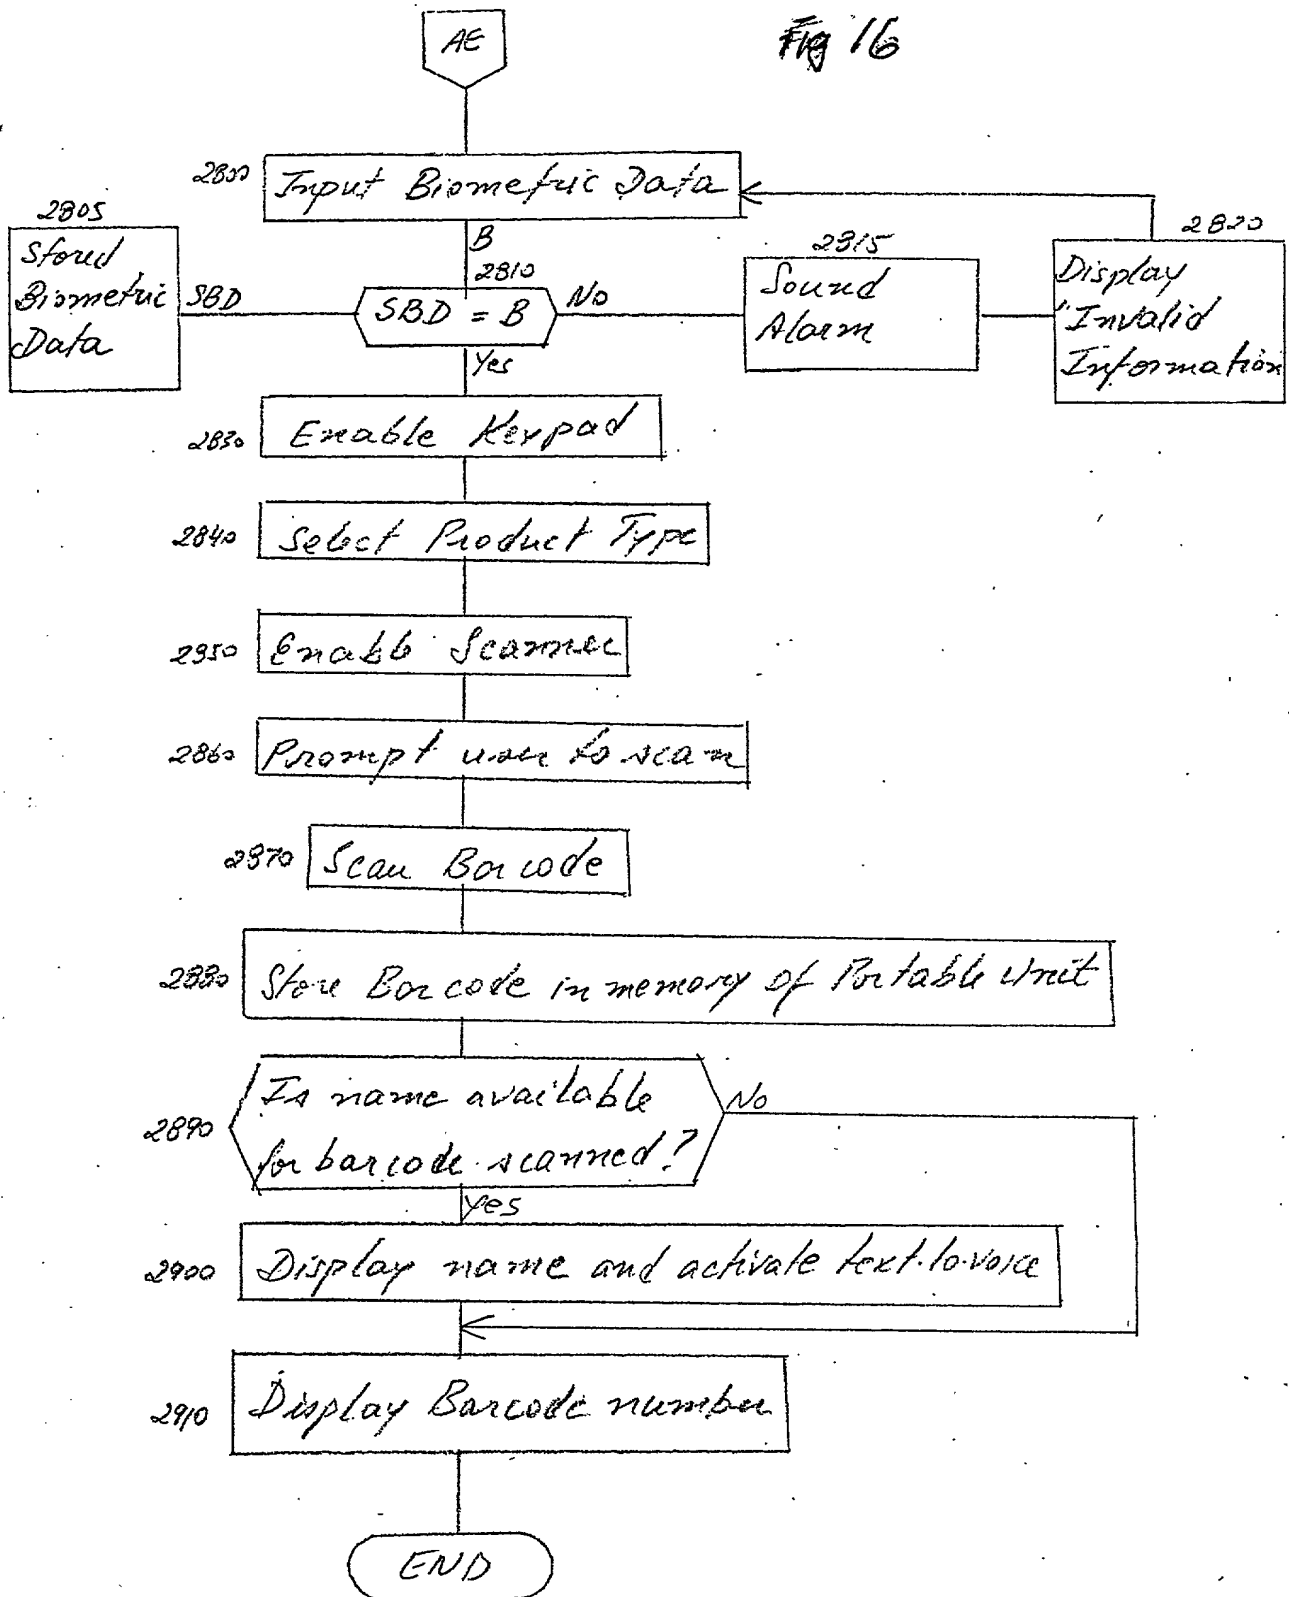 Fig 16
AE
2800
Input Biometric Data
2805
Stored
Biometric
Data
SBD
B
2810
SBD = B
No
2815
Sound
Alarm
2820
Display
"Invalid
Information
Yes
2830
Enable Keypad
2840
Select Product Type
2850
Enable Scanner
2860
Prompt user to scan
2870
Scan Barcode
2880
Store Barcode in memory of Portable Unit
2890
Is name available
for barcode scanned?
No
Yes
2900
Display name and activate text-to-voice
2910
Display Barcode number
END